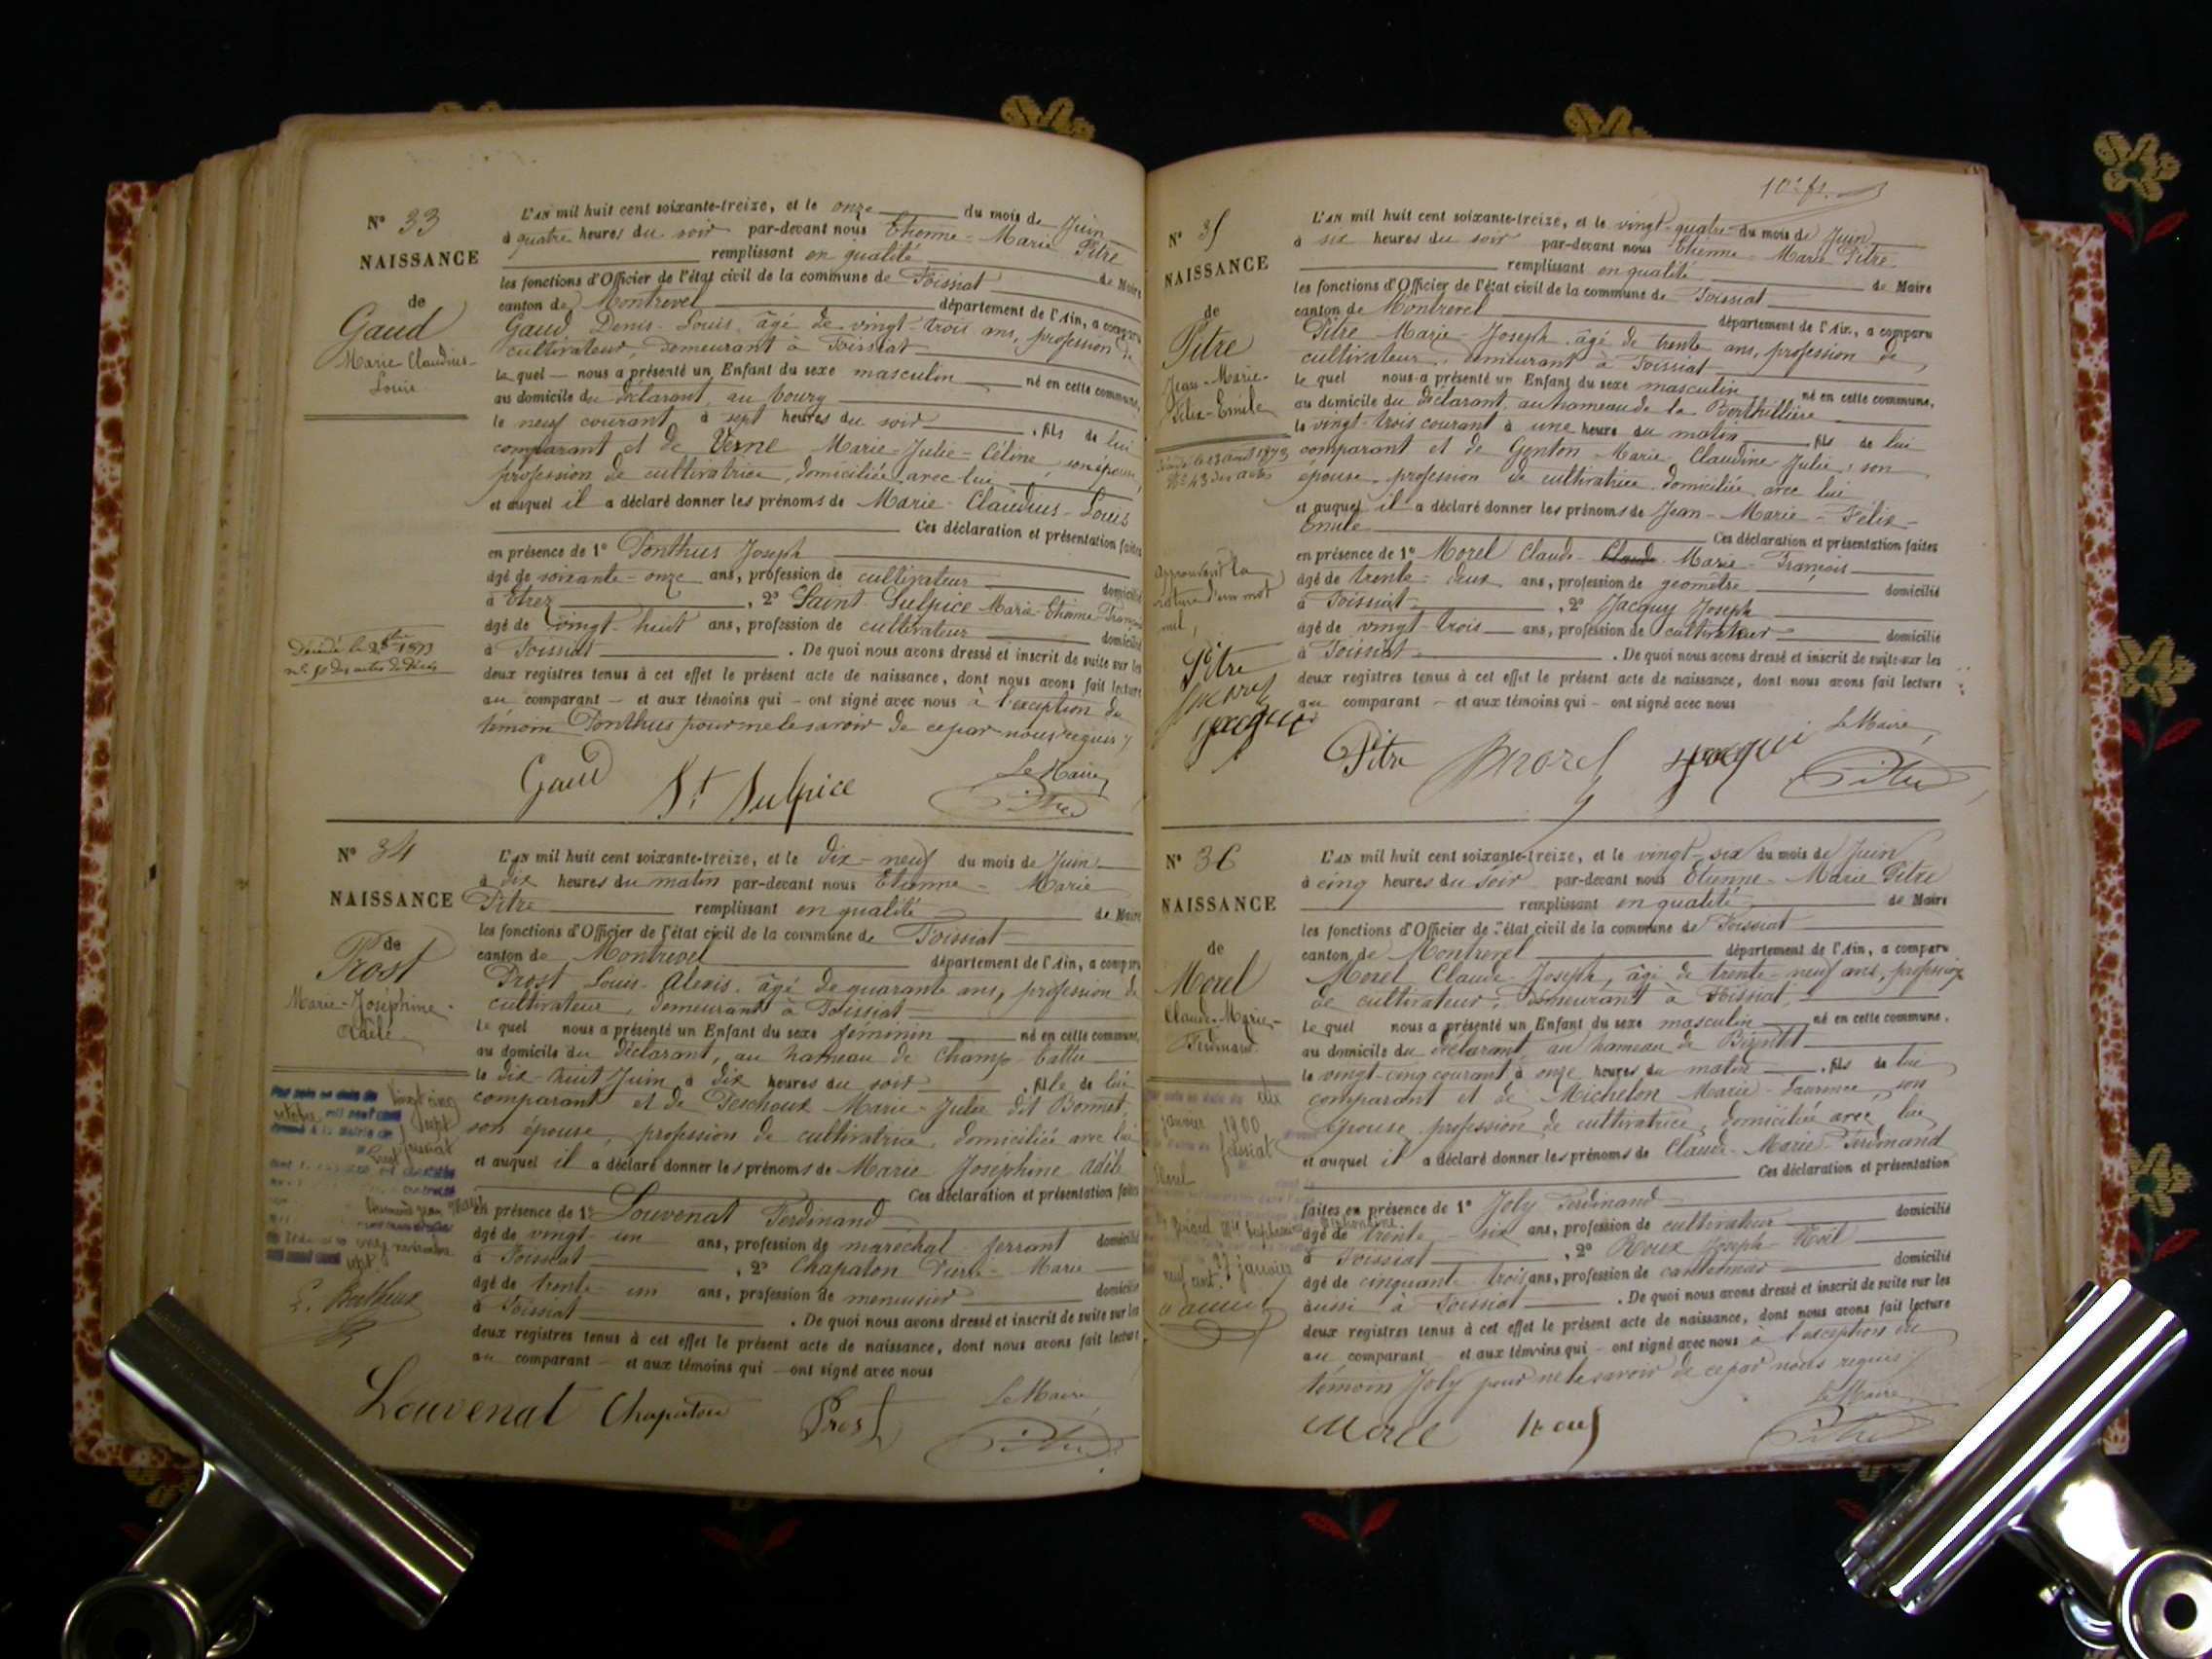 N° 33
NAISSANCE
de
Gaud
Marie Claudius-
Louis
Décédé le 2 1873
des actes de Décès
L'AN mil huit cent soixante-treize, et le onze du mois de Juin
à quatre heures du soir par-devant nous Etienne - Marie Pitre
remplissant en qualité de Maire
les fonctions d'Officier de l'état civil de la commune de Foissiat
canton de Montrevel département de l'Ain, a comparu
Gaud Denis-Louis, âgé de vingt-trois ans, profession de
cultivateur, demeurant à Foissiat
Lequel — nous a présenté un Enfant du sexe masculin né en cette commune,
au domicile du déclarant, au bourg
le neuf courant à sept heures du soir , fils de lui
comparant et de Verne Marie-Julie-Céline, son épouse,
profession de cultivatrice, domiciliée avec lui
et auquel il a déclaré donner les prénoms de Marie-Claudius-Louis
Ces déclaration et présentation faites
en présence de 1° Ponthus Joseph
âgé de soixante-onze ans, profession de cultivateur domicilié
à Etrez , 2° Saint Sulpice Marie-Etienne-François
âgé de vingt-huit ans, profession de cultivateur domicilié
à Foissiat . De quoi nous avons dressé et inscrit de suite sur les
deux registres tenus à cet effet le présent acte de naissance, dont nous avons fait lecture
au comparant — et aux témoins qui — ont signé avec nous à l'exception du
témoin Ponthus pour ne le savoir de ce par nous requis
Gaud St Sulpice Le Maire,
Pitre
N° 34
NAISSANCE
de
Prost
Marie-Joséphine-
Adèle
vingt cinq
sept
foissiat
E. Berthoux
L'AN mil huit cent soixante-treize, et le dix-neuf du mois de Juin
à dix heures du matin par-devant nous Etienne - Marie
Pitre remplissant en qualité de Maire
les fonctions d'Officier de l'état civil de la commune de Foissiat
canton de Montrevel département de l'Ain, a comparu
Prost Louis-Alexis, âgé de quarante ans, profession de
cultivateur, demeurant à Foissiat
Lequel nous a présenté un Enfant du sexe féminin né en cette commune,
au domicile du déclarant, au hameau de Champ-battu
le dix-huit Juin à dix heures du soir , fille de lui
comparant et de Deschoux Marie-Julie dit Bonnet,
son épouse, profession de cultivatrice, domiciliée avec lui
et auquel il a déclaré donner les prénoms de Marie Joséphine Adèle
Ces déclaration et présentation faites
en présence de 1° Louvenat Ferdinand
âgé de vingt-un ans, profession de maréchal ferrant domicilié
à Foissiat , 2° Chapaton Pierre-Marie
âgé de trente-un ans, profession de menuisier domicilié
à Foissiat . De quoi nous avons dressé et inscrit de suite sur les
deux registres tenus à cet effet le présent acte de naissance, dont nous avons fait lecture
au comparant — et aux témoins qui — ont signé avec nous
Louvenat Chapaton Prost Le Maire,
Pitre
N° 35
NAISSANCE
de
Pitre
Jean-Marie-
Félix-Emile
Décédé le 13 août 1873
N° 43 des actes
Approuvant la
rature d'un mot
nul,
Pitre
Morel
Jacqui
L'AN mil huit cent soixante-treize, et le vingt-quatre du mois de Juin
à six heures du soir par-devant nous Etienne - Marie Pitre
remplissant en qualité de Maire
les fonctions d'Officier de l'état civil de la commune de Foissiat
canton de Montrevel département de l'Ain, a comparu
Pitre Marie-Joseph, âgé de trente ans, profession de
cultivateur, demeurant à Foissiat
Lequel nous a présenté un Enfant du sexe masculin né en cette commune,
au domicile du déclarant, au hameau de la Berthillière
le vingt-trois courant à une heure du matin , fils de lui
comparant et de Genton Marie Claudine Julie, son
épouse, profession de cultivatrice, domiciliée avec lui
et auquel il a déclaré donner les prénoms de Jean-Marie-Félix-
Emile Ces déclaration et présentation faites
en présence de 1° Morel Claude-Claude Marie-François
âgé de trente-deux ans, profession de géomètre domicilié
à Foissiat , 2° Jacquy Joseph
âgé de vingt-trois ans, profession de cultivateur domicilié
à Foissiat . De quoi nous avons dressé et inscrit de suite sur les
deux registres tenus à cet effet le présent acte de naissance, dont nous avons fait lecture
au comparant — et aux témoins qui — ont signé avec nous
Pitre Morel Jacqui Le Maire,
Pitre
N° 36
NAISSANCE
de
Morel
Claude-Marie-
Ferdinand
dix
janvier 1900
foissiat
Morel
27 janvier
L'AN mil huit cent soixante-treize, et le vingt-six du mois de Juin
à cinq heures du soir par-devant nous Etienne-Marie Pitre
remplissant en qualité de Maire
les fonctions d'Officier de l'état civil de la commune de Foissiat
canton de Montrevel département de l'Ain, a comparu
Morel Claude-Joseph, âgé de trente-neuf ans, profession
de cultivateur, demeurant à Foissiat,
Lequel nous a présenté un Enfant du sexe masculin né en cette commune,
au domicile du déclarant, au hameau de
le vingt-cinq courant à onze heures du matin , fils de lui
comparant et de Michelon Marie-Laurence, son
épouse, profession de cultivatrice, domiciliée avec lui
et auquel il a déclaré donner les prénoms de Claude-Marie-Ferdinand
Ces déclaration et présentation
faites en présence de 1° Joly Ferdinand
âgé de trente-six ans, profession de cultivateur domicilié
à Foissiat , 2° Roux Joseph-Noël
âgé de cinquante-trois ans, profession de domicilié
aussi à Foissiat . De quoi nous avons dressé et inscrit de suite sur les
deux registres tenus à cet effet le présent acte de naissance, dont nous avons fait lecture
au comparant — et aux témoins qui — ont signé avec nous à l'exception du
témoin Joly pour ne le savoir de ce par nous requis
Morel Roux Le Maire
Pitre